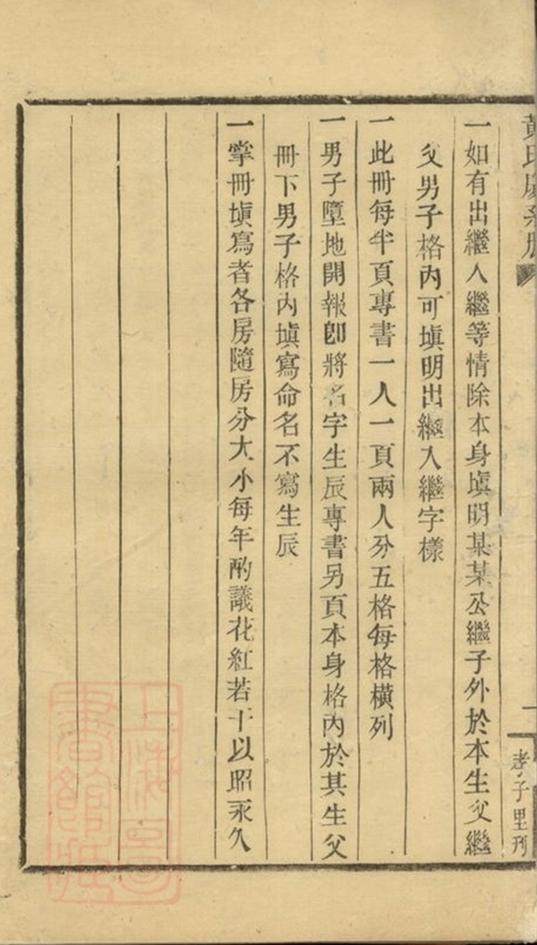 黃氏慶系册
一
孝子里刋
一如有出繼入繼等情除本身塡明某某公繼子外於本生父繼
父男子格內可塡明出繼入繼字樣
一此冊每半頁專書一人一頁兩人分五格每格橫列
一男子墮地開報卽將名字生辰專書另頁本身格內於其生父
冊下男子格內塡寫命名不寫生辰
一掌冊塡寫者各房隨房分大小每年酌議花紅若干以昭永久
上海圖書館藏